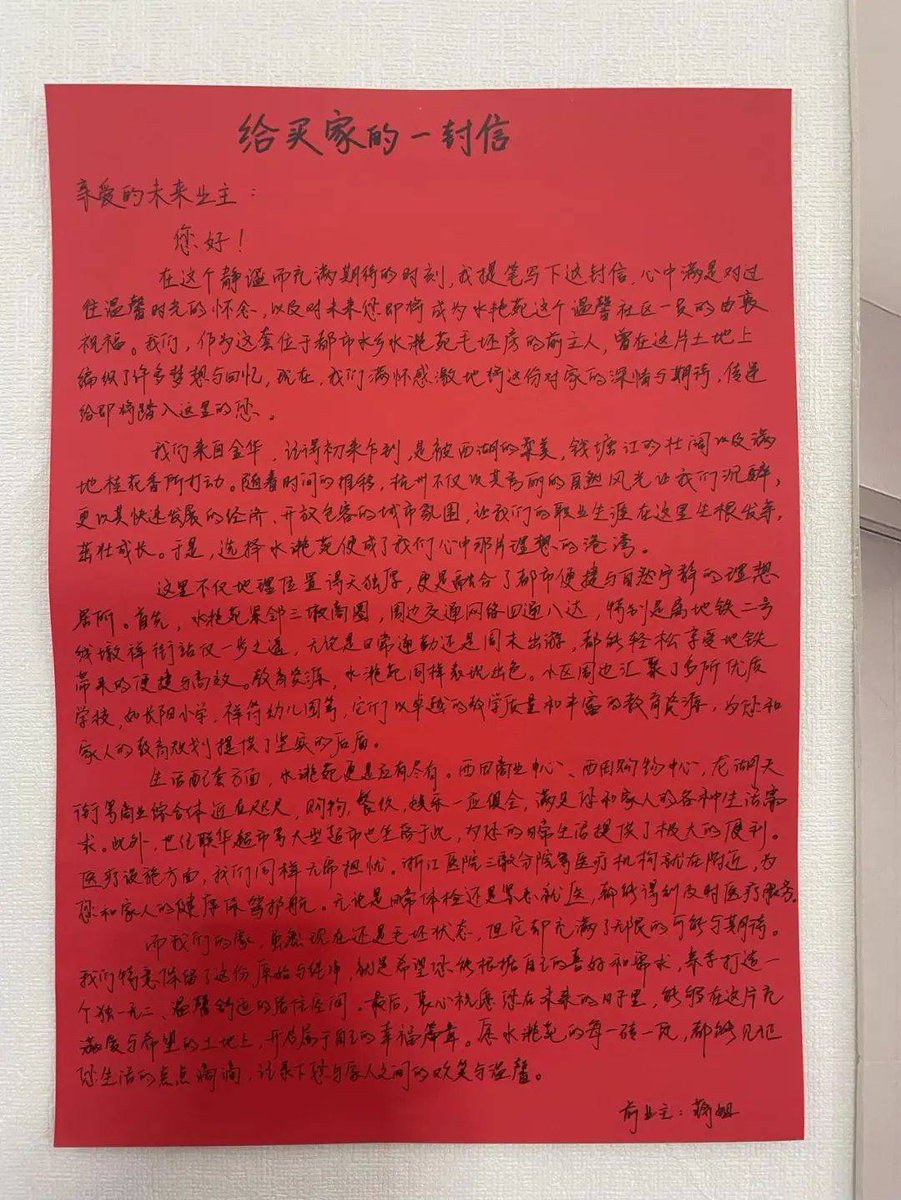 给买家的一封信
亲爱的未来业主：
您好！
在这个静谧而充满期待的时刻，我提笔写下这封信，心中满是对过
往温馨时光的怀念，以及对未来您即将成为水滟苑这个温馨社区一员的由衷
祝福。我们，作为这套位于都市水乡水滟苑毛坯房的前主人，曾在这片土地上
编织了许多梦想与回忆，现在，我们满怀感激地将这份对家的深情与期待，传递
给即将踏入这里的您。
我们来自金华，记得初来乍到，是被西湖的柔美，钱塘江的壮阔以及满
地桂花香所打动。随着时间的推移，杭州不仅以其秀丽的自然风光让我们沉醉，
更以其快速发展的经济、开放包容的城市氛围，让我们的职业生涯在这里生根发芽，
茁壮成长。于是，选择水滟苑便成了我们心中那片理想的港湾。
这里不仅地理位置得天独厚，更是融合了都市便捷与自然宁静的理想
居所。首先，水滟苑紧邻三墩商圈，周边交通网络四通八达，特别是离地铁二号
线墩祥街站仅一步之遥，无论是日常通勤还是周末出游，都能轻松享受地铁
带来的便捷与高效。教育资源，水滟苑同样表现出色。小区周边汇聚了多所优质
学校，如长阳小学，祥符幼儿园等，它们以卓越的教学质量和丰富的教育资源，为您和
家人的教育规划提供了坚实的后盾。
生活配套方面，水滟苑更是应有尽有。西田商业中心、西田购物中心，龙湖天
街等商业综合体近在咫尺，购物，餐饮，娱乐一应俱全，满足您和家人的各种生活需
求。此外，世纪联华超市等大型超市也坐落于此，为您的日常生活提供了极大的便利。
医疗设施方面，我们同样无需担忧。浙江医院三墩分院等医疗机构就在附近，为
您和家人的健康保驾护航。无论是日常体检还是紧急就医，都能得到及时医疗服务。
而我们的家，虽然现在还是毛坯状态，但它却充满了无限的可能与期待。
我们特意保留了这份原始与纯净，就是希望您能根据自己的喜好和需求，亲手打造一
个独一无二、温馨舒适的居住空间。最后，衷心祝愿您在未来的日子里，能够在这片充
满爱与希望的土地上，开启属于自己的幸福篇章。愿水滟苑的每一砖一瓦，都能见证
您生活的点点滴滴，记录下您与家人之间的欢笑与温馨。
前业主：蒋姐